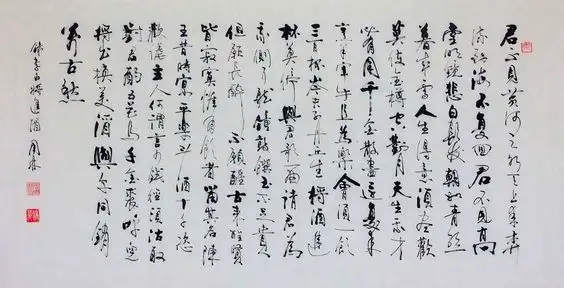 君不見黃河之水天上來奔
流到海不復回君不見高
堂明鏡悲白髮朝如青絲
暮成雪人生得意須盡歡
莫使金樽空對月天生我才
必有用千金散盡還復來
烹羊宰牛且為樂會須一飲
三百杯岑夫子丹丘生將酒進
杯莫停與君歌一曲請君為
我側耳聽鐘鼓饌玉不足貴
但願長醉不願醒古來聖賢
皆寂寞惟有飲者留其名陳
王昔時宴平樂斗酒十千恣
歡謔主人何謂言少錢徑須沽取
對君酌五花馬千金裘呼兒
將出換美酒與爾同銷
萬古愁
錄李白將進酒